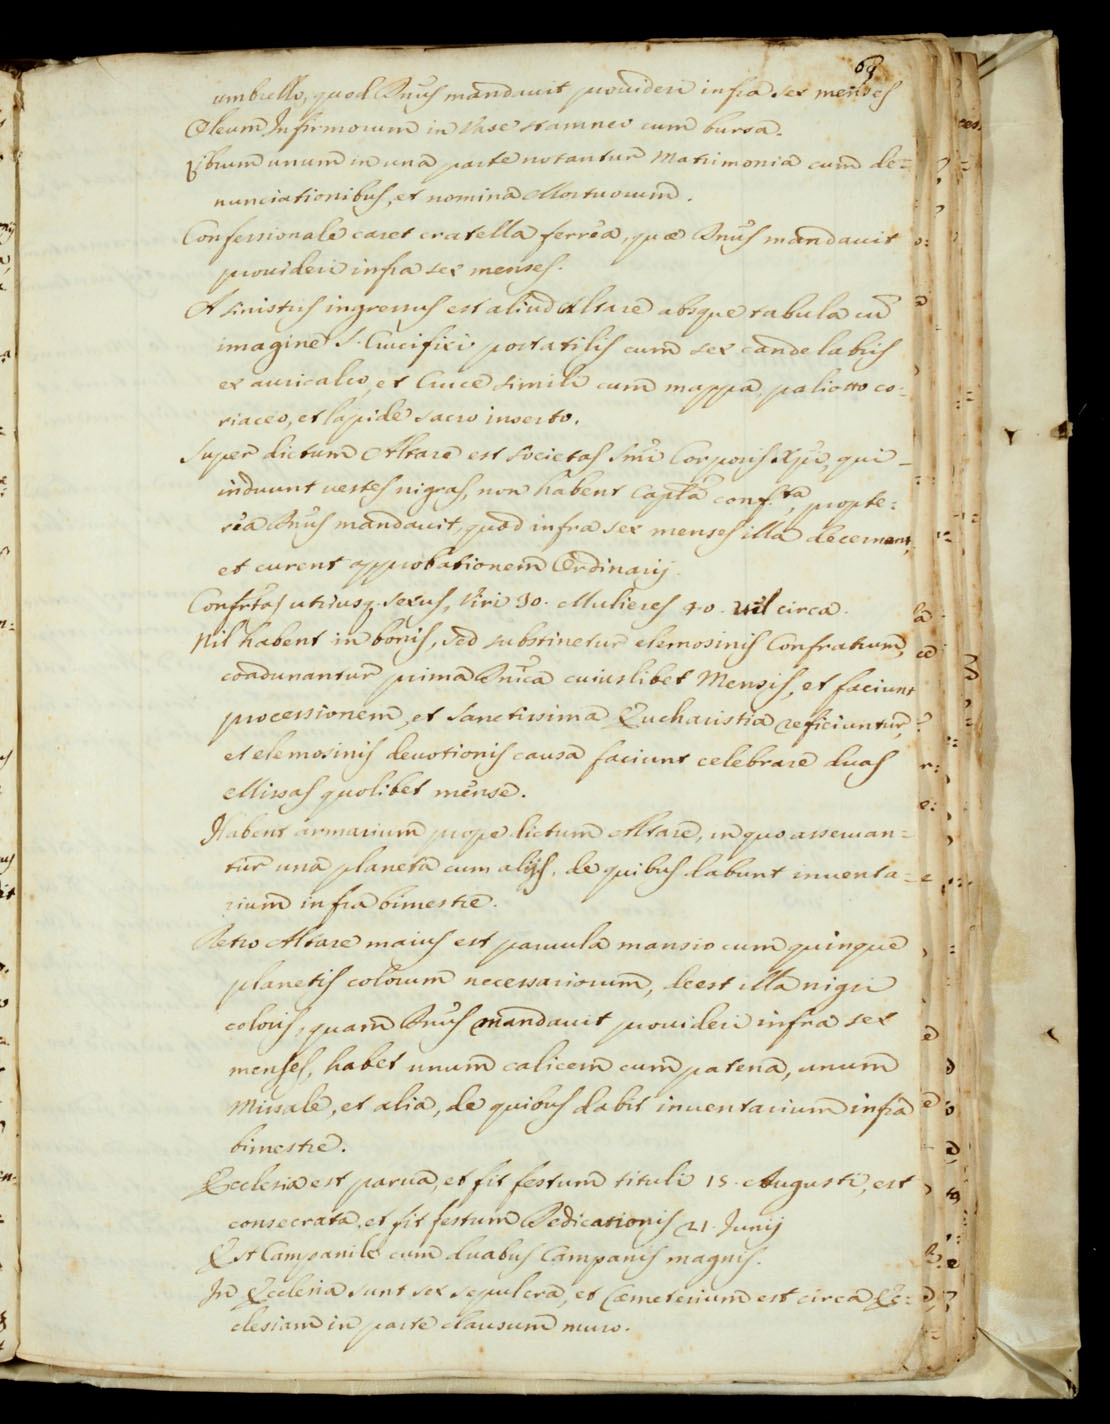 69
umbrello, quod Dnus mandauit prouideri infra sex menses
Oleum Infirmorum in Vase stamneo cum bursa.
Librum unum in una parte notantur Matrimonia cum de=
nunciationibus, et nomina Mortuorum.
Confessionale caret cratella ferrea, quæ Dnus mandauit
prouideri infra sex menses.
A sinistris ingressus est aliud Altare absque tabula cu
imagine S. Crucifixi portatilis cum sex candelabris
ex auricalco, et Cruce simili cum mappa, paliotto co=
riaceo, et lapide sacro inserto.
Super dictum Altare est Societas Smi Corporis Xpi, qui
induunt vestes nigras, non habent Capla conf.ta, propte=
rea Dnus mandauit, quod infra sex menses illa decernant,
et curent approbationem Ordinarij.
Confrtas utriusq. sexus, Viri 30. Mulieres 40. uel circa.
Nil habent in bonis, sed substinetur elemosinis Confratrum,
coadunantur prima Dnica cuiuslibet Mensis, et faciunt
processionem, et Sanctissima Eucharistia reficiuntur,
et elemosinis deuotionis causa faciunt celebrare duas
Missas quolibet mense.
Habent armarium prope dictum Altare, in quo asseruan=
tur una planeta cum alijs, de quibus dabunt inuenta=
rium infra bimestre.
Retro Altare maius est paruula mansio cum quinque
planetis colorum necessariorum, deest illa nigri
coloris, quam Dnus mandauit prouideri infra sex
menses, habet unum calicem cum patena, unum
Missale, et alia, de quibus dabit inuentarium infra
bimestre.
Ecclesia est parua, et fit festum tituli 15. Augusti, est
consecrata, et fit festum Dedicationis 21. Junij
Est Campanile cum duabus Campanis magnis.
In Ecclesia sunt sex sepulcra, et Cœmeterium est circa Ec=
clesiam in parte clausum muro.